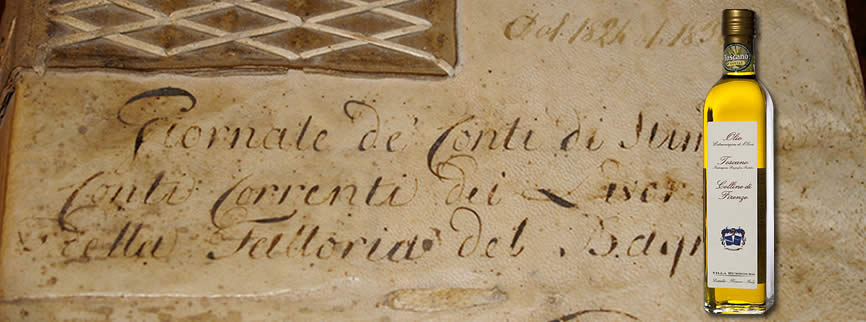 Dal 1824
Giornale de' Conti di
Conti Correnti dei
della Fattoria del
Toscano
Olio
Extravergine di Oliva
Toscano
Colline di
Firenze
VILLA